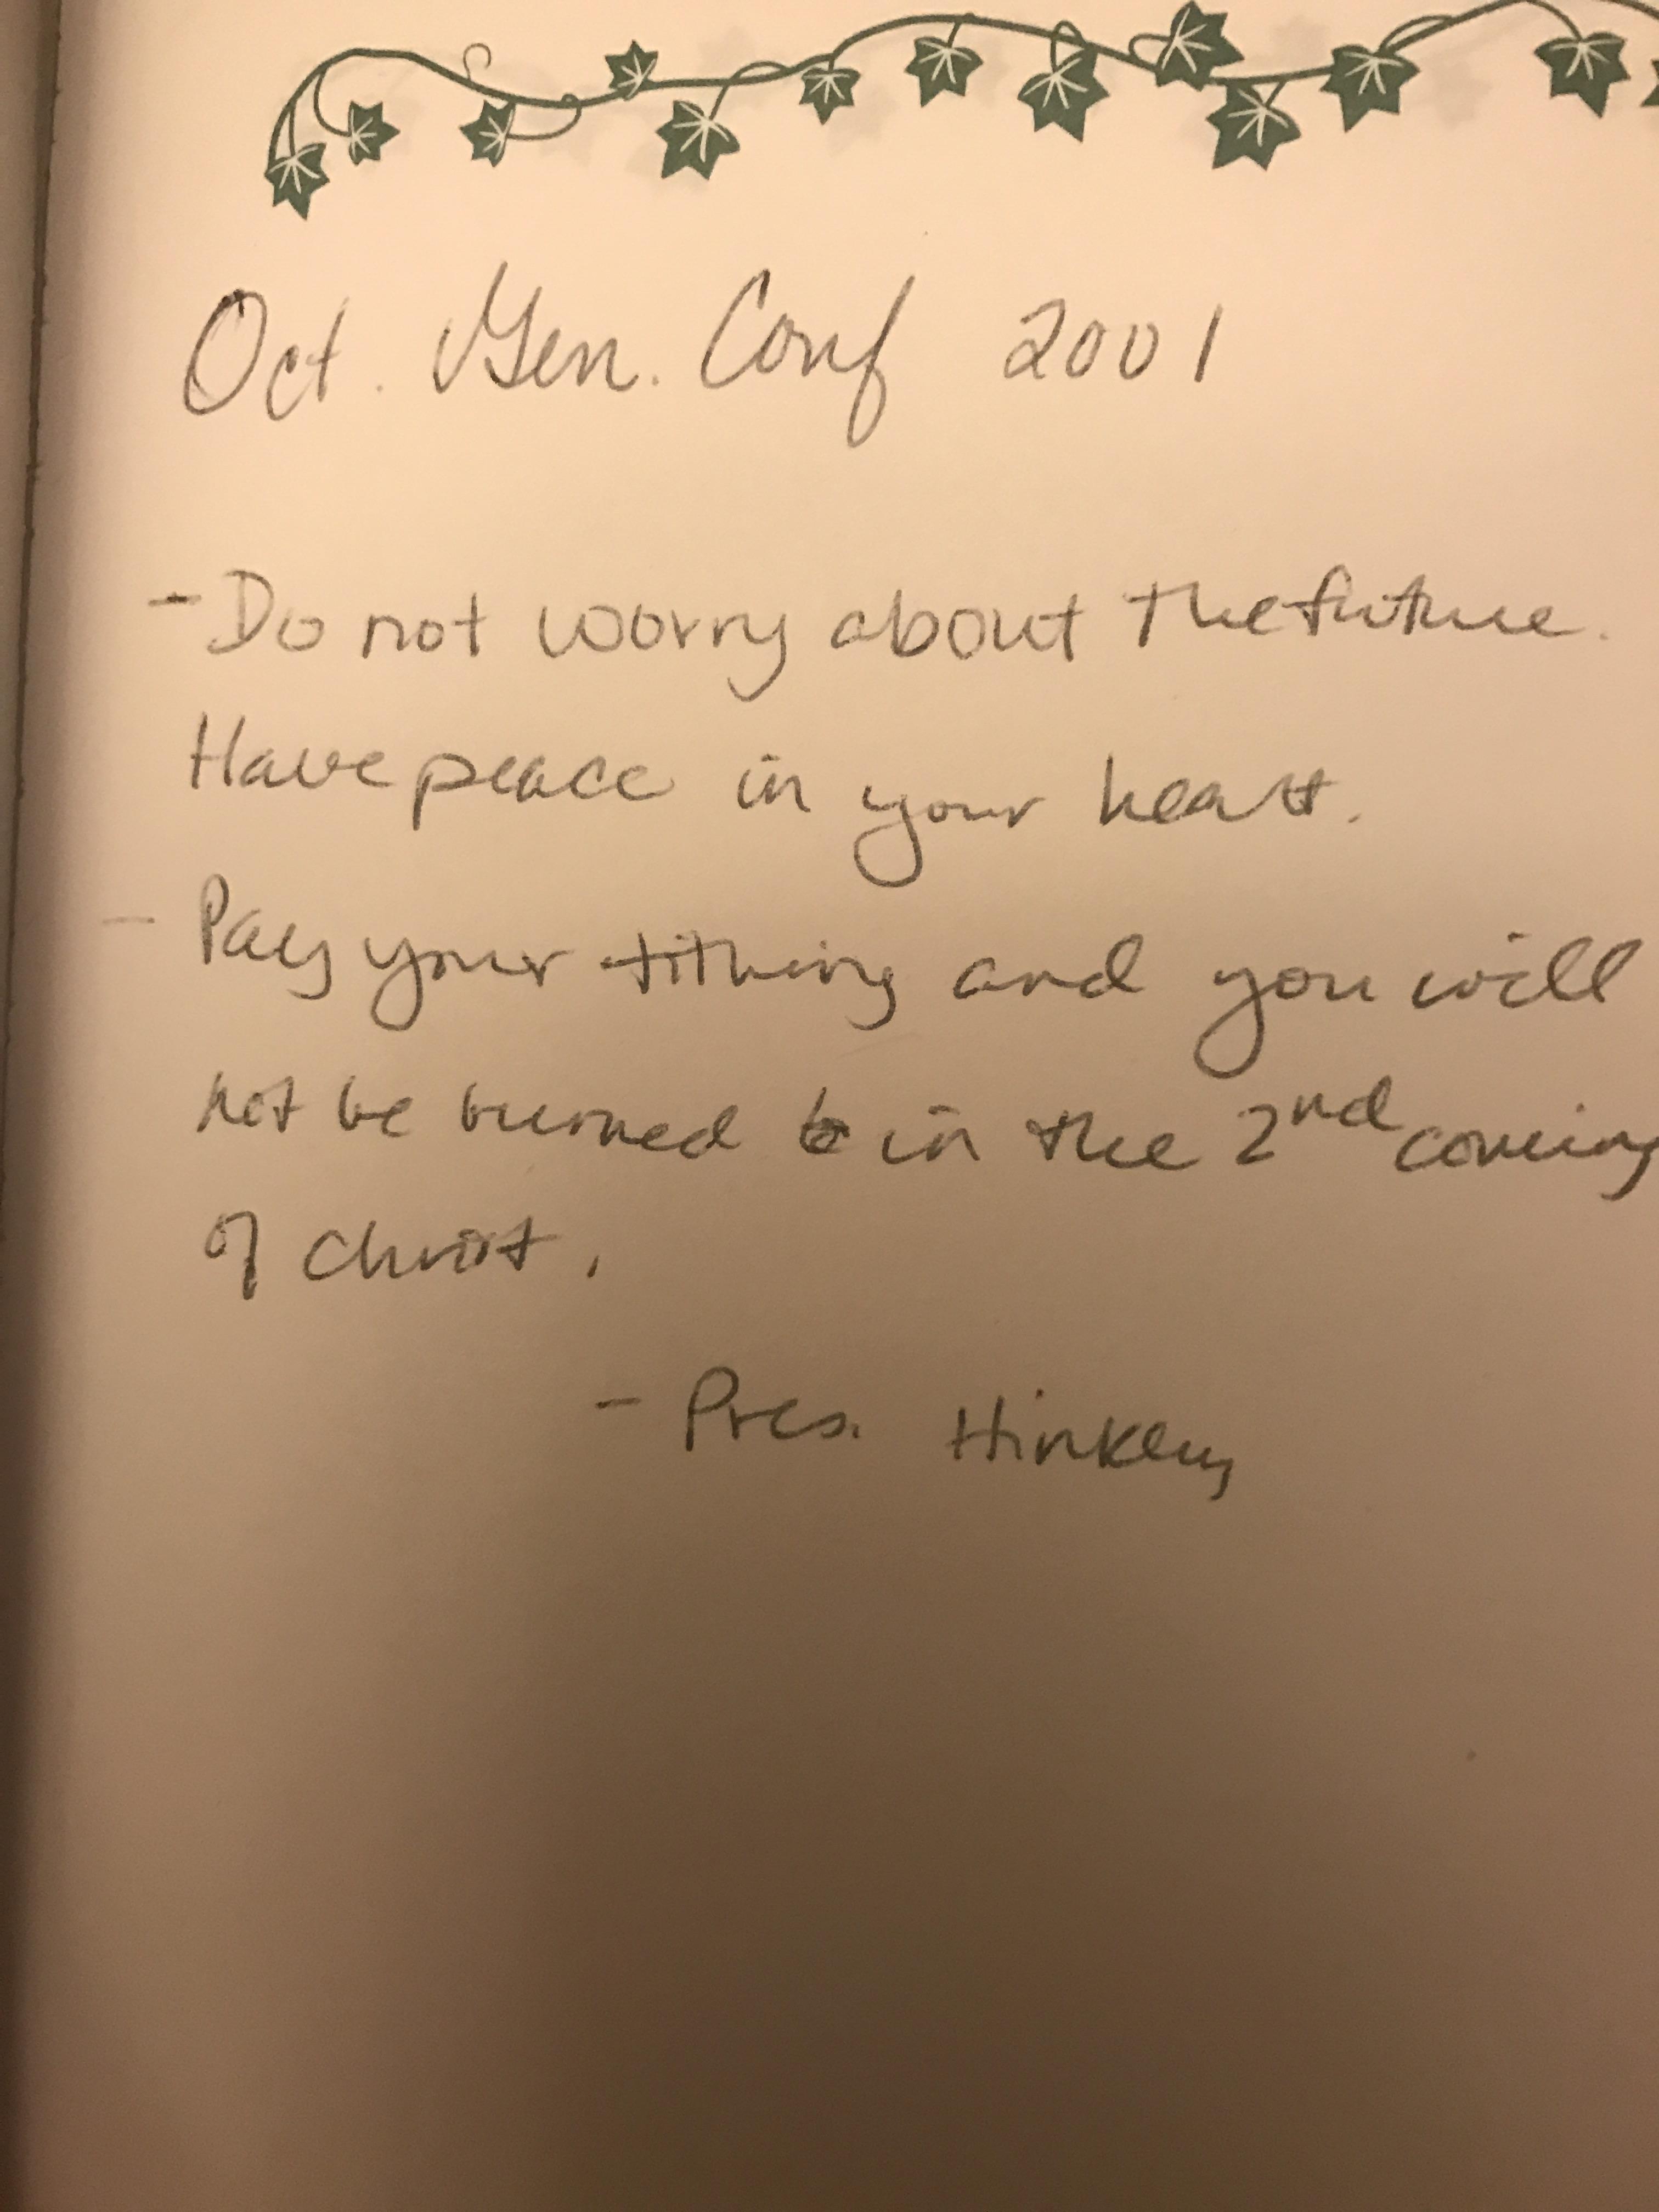 Oct. Gen. Conf 2001
- Do not worry about the future.
Have peace in your heart.
- Pay your tithing and you will
not be burned in the 2nd coming
of Christ.
- Pres. Hinkley